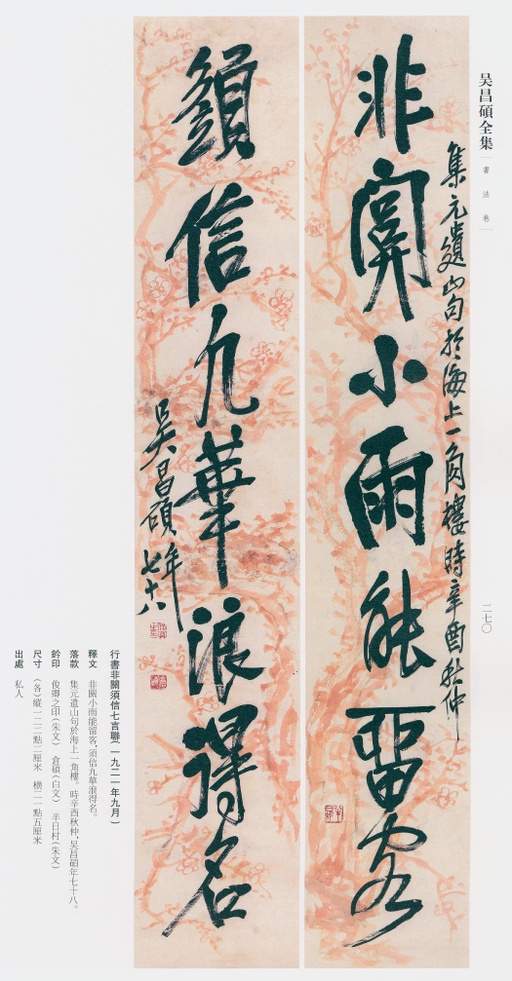 吴昌碩全集
書法卷
二七〇
集元遺山句於海上一角樓時辛酉秋仲
非關小雨能留客
須信九華浪得名
吳昌碩年七十八
行書非關須信七言聯(一九二一年九月)
釋文 非關小雨能留客，須信九華浪得名。
落款 集元遺山句於海上一角樓。時辛酉秋仲，吳昌碩年七十八。
鈐印 俊卿之印(朱文) 倉碩(白文) 半日村(朱文)
尺寸 (各)縱一二二點二厘米 橫二一點五厘米
出處 私人